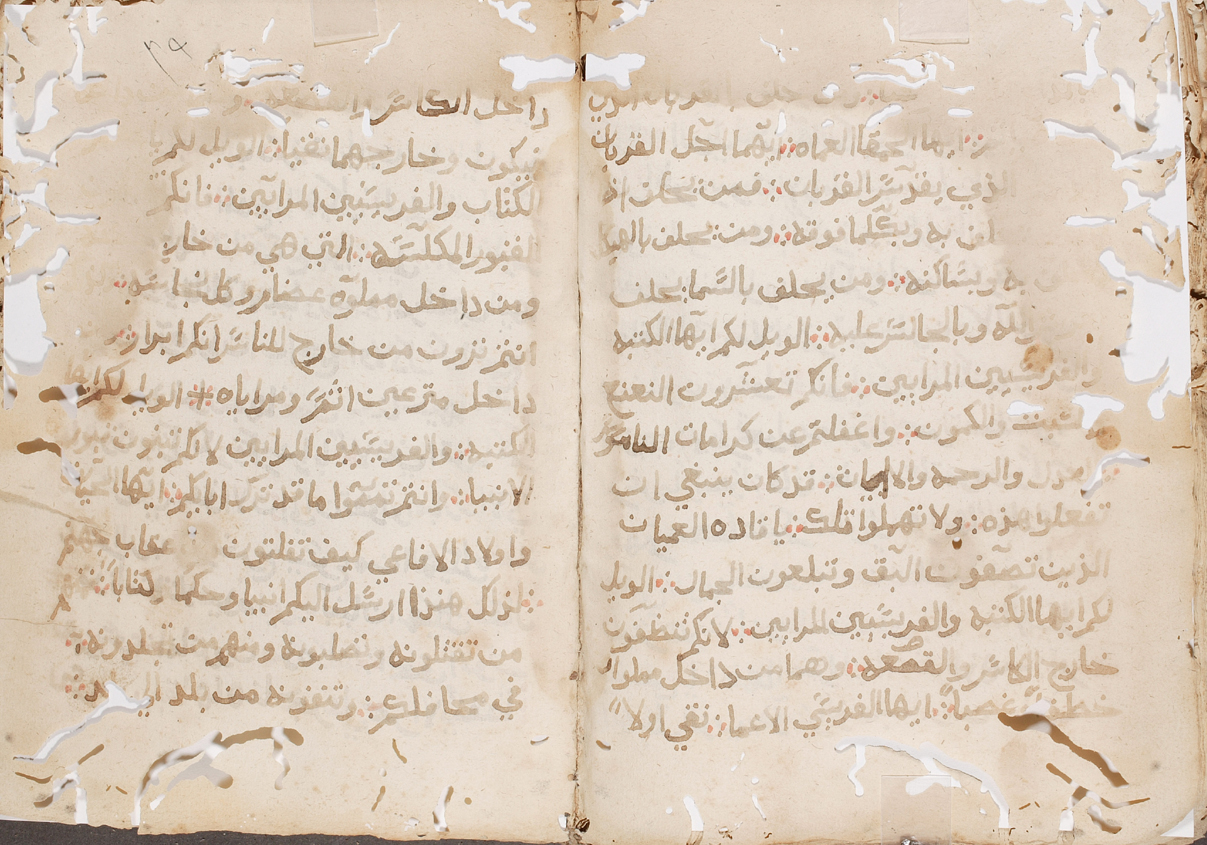 يحلف بالقربان الذي
ايها الحمقا العماه ايهما اجل القربان
الذي يقدس القربان فمن يحلف
به وبكلما فوقه ومن يحلف بالهيكل
به وبساكنه ومن يحلف بالسما يحلف
الله وبالجالس عليه الويل لكم ايها الكتبه
والفريسيين المرايين فانكم تعشرون النعنع
والشبت والكمون واغفلتم عن كرامات الناس
العدل والرحمه والايمان قد كان ينبغي ان
تفعلوا هذه ولا تهملوا تلك يا قاده العميان
الذين تصفون البق وتبلعون الجمال الويل
لكم ايها الكتبه والفريسيين المرايين لانكم تنظفون
خارج الكاس والقصعه وهما من داخل مملوا
خطف غصبا ايها الفريسي الاعما نقي اولا
داخل الكاس والقصعه
فيكون وخارجهما نقيا الويل لكم يا
الكتاب والفريسيين المرايين فانكم
القبور المكلسه التي هي من خارج
ومن داخل مملوه عضام وكل نجاسه
انتم ترون من خارج للناس انكم ابرار
داخل مترعين اثم ومراياه الويل لكم ايها
الكتبه والفريسيين المرايين لانكم تبنون قبور
الانبيا وانتم تتمتوا ما قد ترك اباكم ايها الحيات
واولاد الافاعي كيف تفلتون من عقاب جهنم
لذلك هنذا ارسل اليكم انبيا وحكما وكتابا
من تقتلونه وتصلبونه ومنهم من تجلدونه
في محافلكم وتنفونه من بلد الي بلد